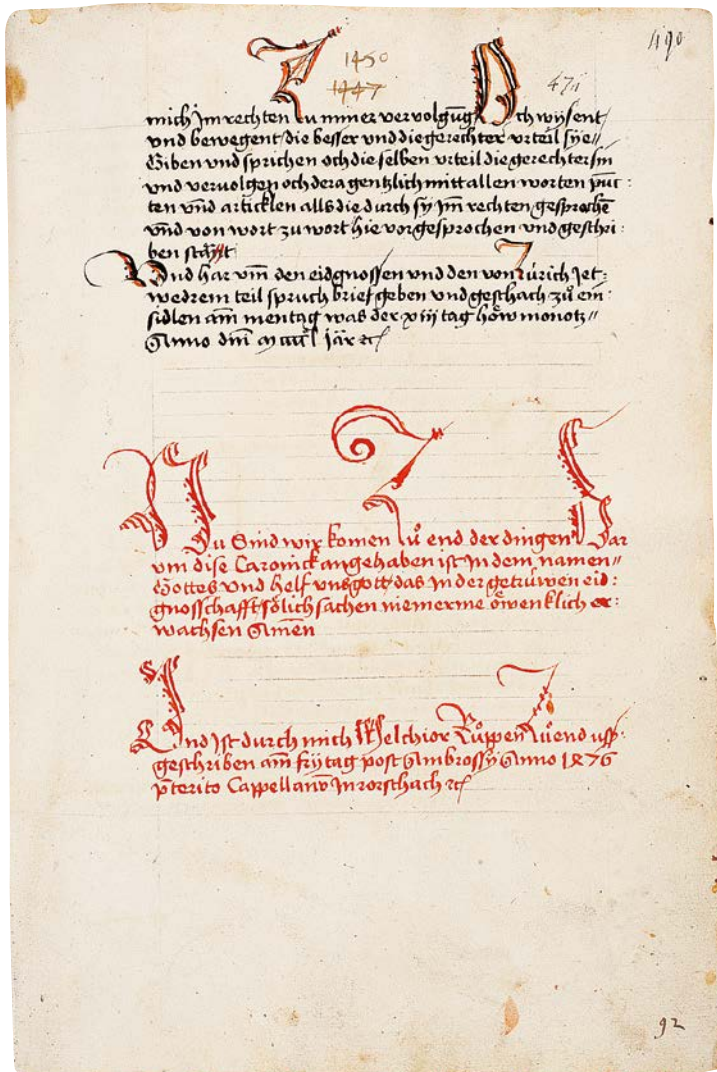 490
1450
1447
471
mich jm rechten zu miner vervolgūg Och wÿsent
vnd bewegent die besser vnd die gerechter vrteil sÿe
Giben vnd sprichen och die selben vrteil die gerechter sin
vnd vervolgen och dera gentzlich mitt allen worten punc:
ten vnd articklen alls die durch sÿ jm rechten gesprochē
vnd von wort zu wort hie vor gesprochen vnd geschri:
ben stant
Vnd har vm̄ den eidgnossen vnd den von Zürich Jet:
wedrem teil spruch brief geben vnd geschach zů ein:
sidlen am̄ mentag was der xiij tag höw monotz
Anno dm̄ mccccl jar ꝛc
Nu Sind wir komen Zů end der dingen Dar
vm dise Caronick angehaben ist Jn dem namen
Gottes Vnd helf vns gott das Jn der getrüwen eid:
gnosschafft sölich sachen niemer me öwenklich er:
wachsen Amen
Vnd Jst durch mich Melchior Růppen Zů end vsz:
geschriben am̄ frÿtag post Ambrossÿ Anno 1476
p̄terito Cappellano Jn rorschach ꝛc
92